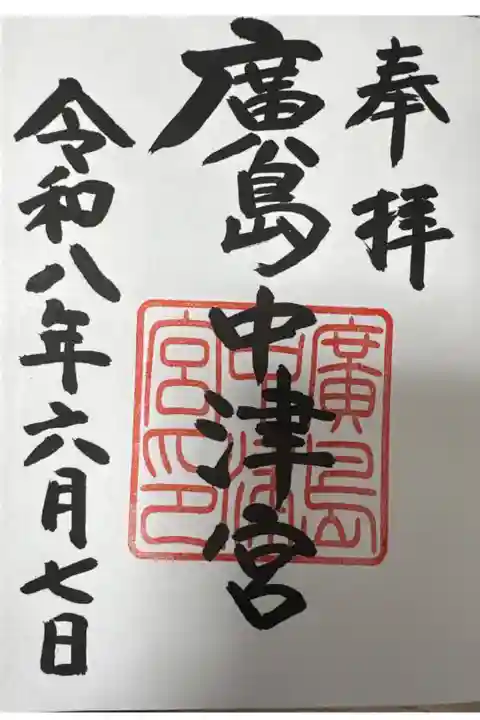 奉拝
廣島中津宮
廣島中津宮印
令和八年六月七日